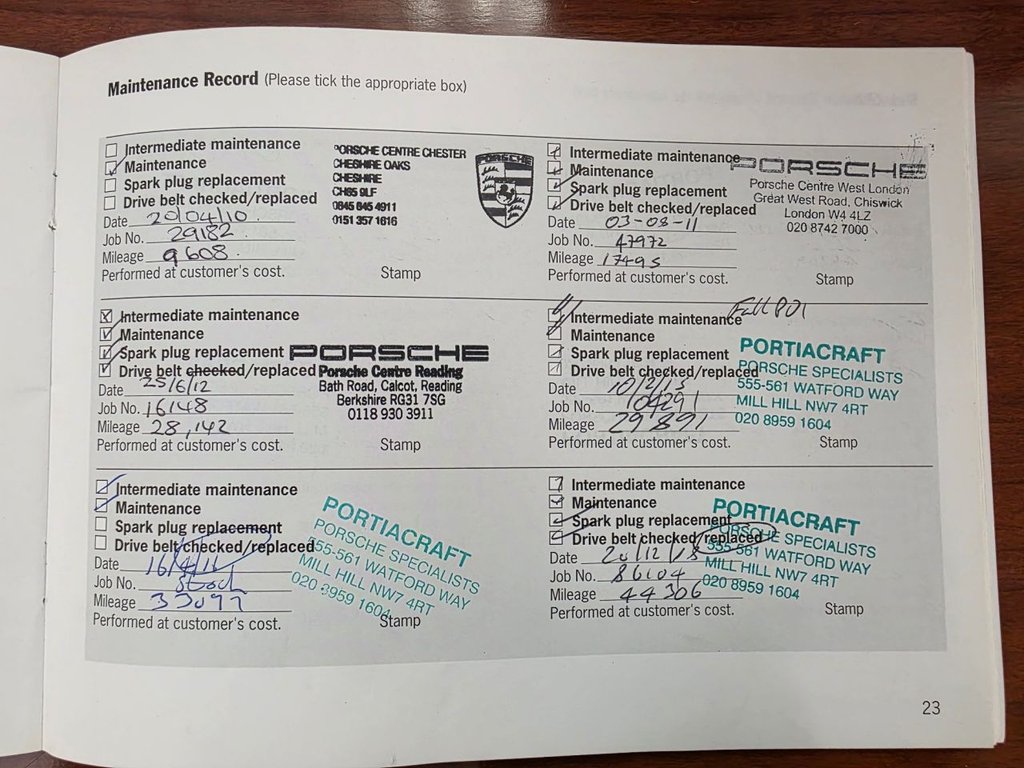 Maintenance Record (Please tick the appropriate box)
Intermediate maintenance
Maintenance
Spark plug replacement
Drive belt checked/replaced
Date 20/04/10.
Job No. 29182.
Mileage 9608.
Performed at customer's cost.
PORSCHE CENTRE CHESTER
CHESHIRE OAKS
CHESHIRE
CH65 9LF
0845 845 4911
0151 357 1616
PORSCHE
Stamp
Intermediate maintenance
Maintenance
Spark plug replacement
Drive belt checked/replaced
Date 03-08-11
Job No. 47972
Mileage 17495
Performed at customer's cost.
PORSCHE
Porsche Centre West London
Great West Road, Chiswick
London W4 4LZ
020 8742 7000
Stamp
Intermediate maintenance
Maintenance
Spark plug replacement
Drive belt checked/replaced
Date 25/6/12
Job No. 16148
Mileage 28,142
Performed at customer's cost.
PORSCHE
Porsche Centre Reading
Bath Road, Calcot, Reading
Berkshire RG31 7SG
0118 930 3911
Stamp
Intermediate maintenance
Maintenance
Spark plug replacement
Drive belt checked/replaced
Date 10/2/15
Job No. 104291
Mileage 29891
Performed at customer's cost.
PORTIACRAFT
PORSCHE SPECIALISTS
555-561 WATFORD WAY
MILL HILL NW7 4RT
020 8959 1604
Stamp
Intermediate maintenance
Maintenance
Spark plug replacement
Drive belt checked/replaced
Date 16/4/16
Job No. Stock
Mileage 33097
Performed at customer's cost.
PORTIACRAFT
PORSCHE SPECIALISTS
555-561 WATFORD WAY
MILL HILL NW7 4RT
020 8959 1604
Stamp
Intermediate maintenance
Maintenance
Spark plug replacement
Drive belt checked/replaced
Date 20/12/18
Job No. 86104
Mileage 44306
Performed at customer's cost.
PORTIACRAFT
PORSCHE SPECIALISTS
555-561 WATFORD WAY
MILL HILL NW7 4RT
020 8959 1604
Stamp
23